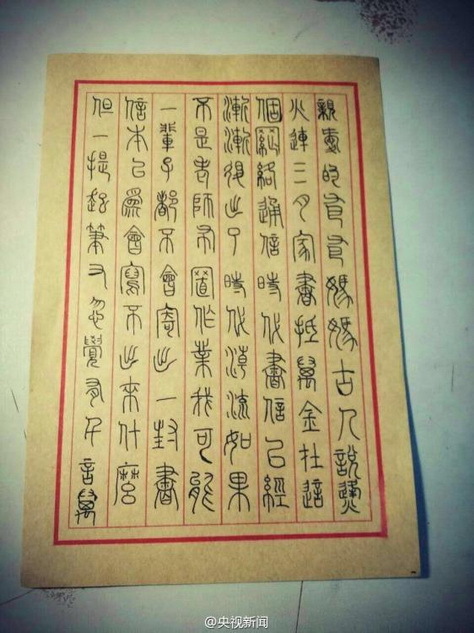 親愛的爸爸媽媽古人說烽
火連三月家書抵萬金在這
個網絡通信時代書信已經
漸漸退出了時代潮流如果
不是老師布置作業我可能
一輩子都不會寄出一封書
信本以為會寫不出來什麼
但一提起筆又忽覺有千言萬
@央视新闻